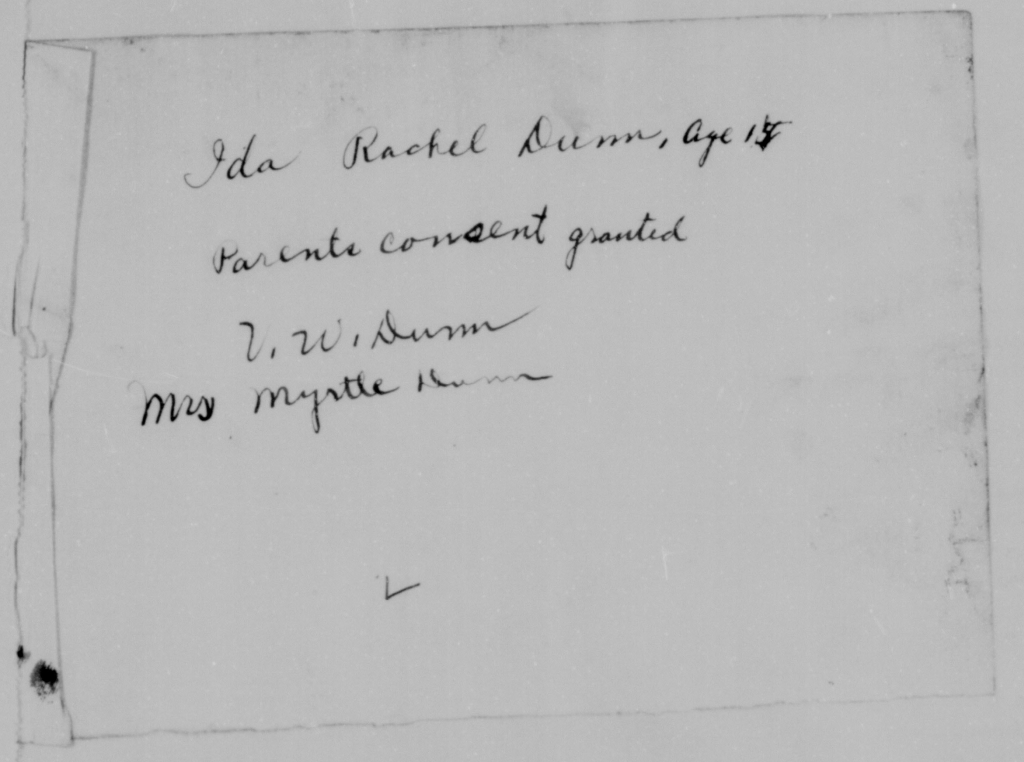 Ida Rachel Dunn, Age
Parents consent granted
V. W. Dunn
Mrs Myrtle Dunn